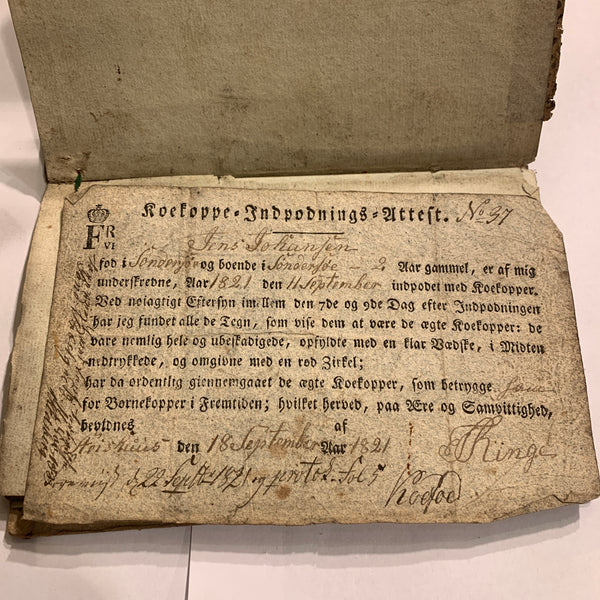 Koekoppe-Indpodnings-Attest. No 37
F R
VI
Jens Johansen
fød i Söndersöe og boende i Söndersöe - 2 Aar gammel, er af mig
underskrevne, Aar 1821 den 11 September indpodet med Koekopper.
Ved nøiagtigt Eftersyn imellem den 7de og 9de Dag efter Indpodningen
har jeg fundet alle de Tegn, som vise dem at være de ægte Koekopper: de
vare nemlig hele og ubeskadigede, opfyldte med en klar Vædske, i Midten
nedtrykkede, og omgivne med en rød Zirkel;
har da ordentlig giennemgaaet de ægte Koekopper, som betrygge
for Børnekopper i Fremtiden; hvilket herved, paa Ære og Samvittighed,
bevidnes af
den 18 September Aar 1821 Ringe
d 22 Septbr 1821 og protok. Fol 5